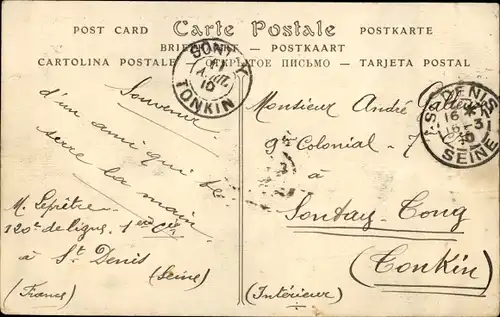 POST CARD Carte Postale POSTKARTE
POSTKAART
CARTOLINA POSTALE ОТКРЫТОЕ ПИСЬМО — TARJETA POSTAL
TONKIN
ST DENIS
SEINE
Souvenir
d'un ami qui te
serre la main
M. Leprêtre
120e de ligne 1ère Cie
à St Denis
(Seine)
(France)
Monsieur André
9e Colonial - 7
à
Sontay-Tong
(Tonkin)
(Intérieur)